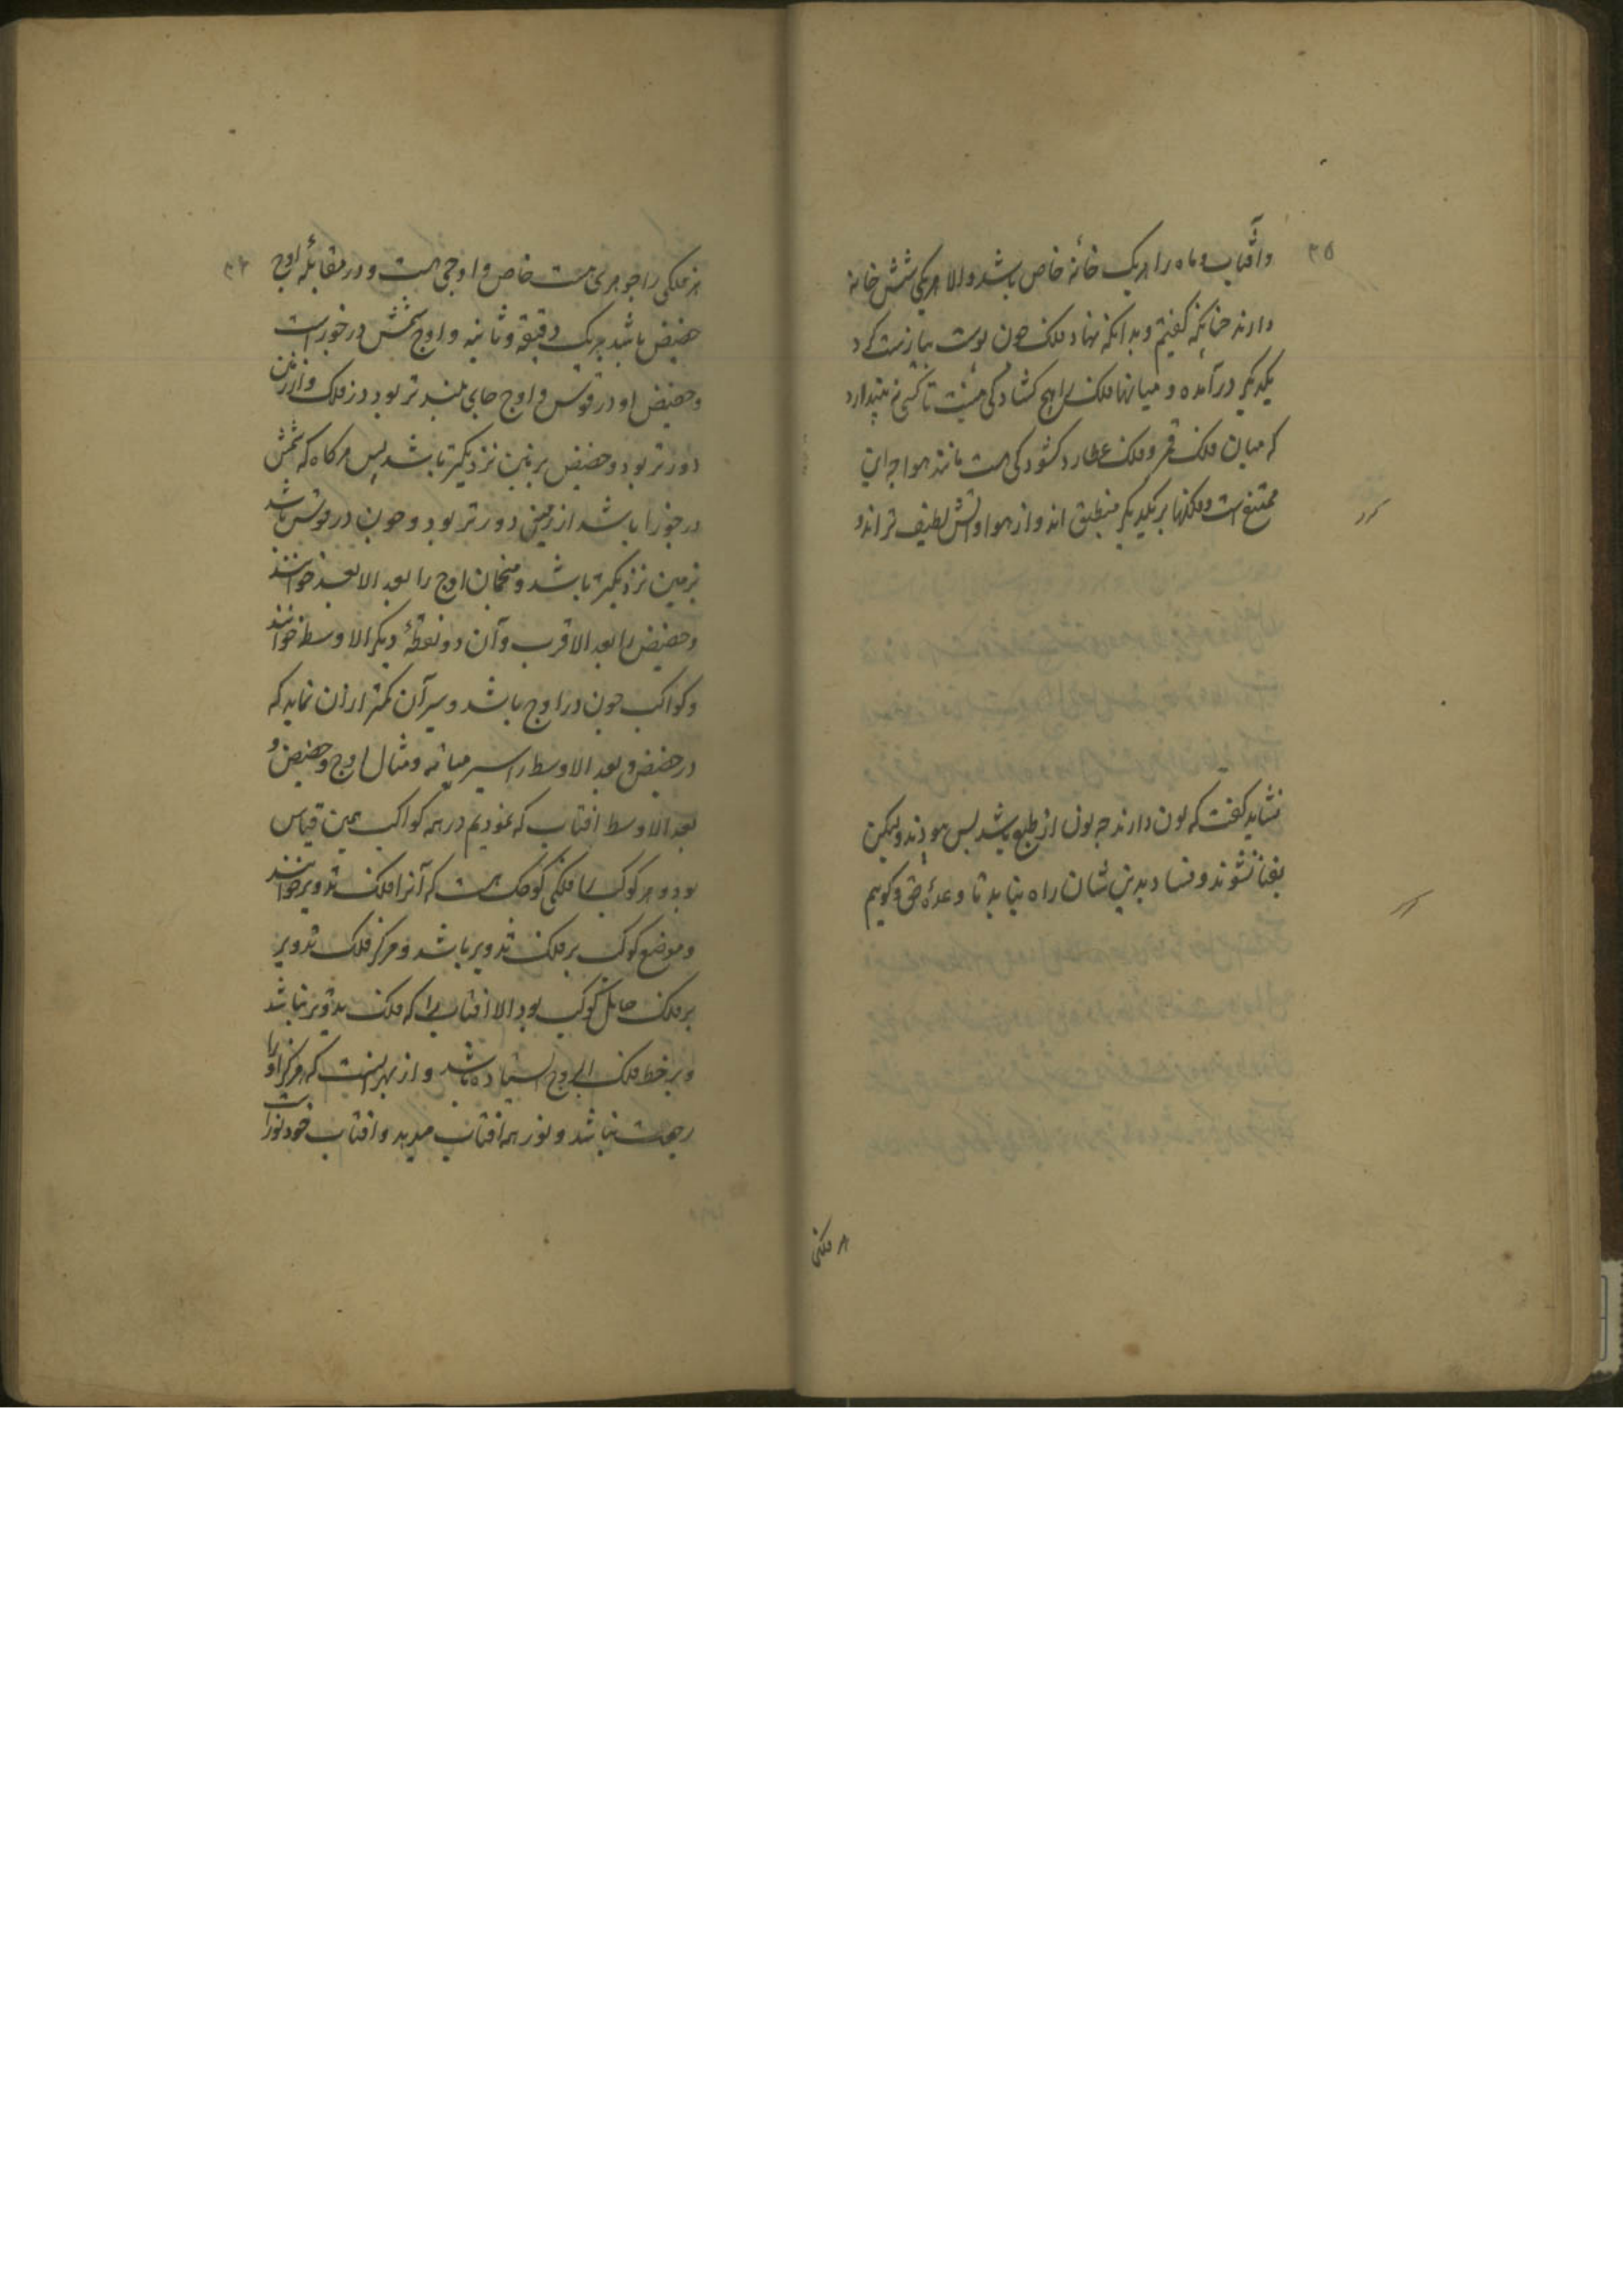 ۳۵
وآفتاب وماه را هریک خانهٔ خاص باشد والا هریکی شش خانه
دارند چنانکه گفتیم وبدانکه نهاد فلک چون پوست پیازست گرد
یکدیگر درآمده و میانها فلک را هیچ گشادگی نیست تا کسی نپندارد
که میان فلک قمر وفلک عطارد گشودگی هست مانند هوا چه این
ممتنع است وفلکها بریکدیگر منطبق اند واز هوا وآتش لطیف تر اند و
نشاید گفت که لون دارند چه لون از طبع باشد پس موجودند ولیکن
بفنا نشوند وفساد بدیشان راه نیابد تا وعدهٔ حق وگوییم
هر فلکی
۳۶
هر فلکی را جوهری هست خاص و اوجی هست ودر مقابلهٔ اوج
حضیض باشد بریک دقیقه وثانیه واوج شمس در جوزاست
وحضیض او در قوس واوج جای بلندتر بود در فلک واز زمین
دورتر بود وحضیض بزمین نزدیکتر باشد پس هرگاه که شمس
در جوزا باشد از زمین دورتر بود وچون در قوس باشد
بزمین نزدیکتر باشد ومنجمان اوج را بعد الابعد خوانند
وحضیض را بعد الاقرب وآن دو نقطهٔ دیگر الاوسط خوانند
وکواکب چون در اوج باشد وسیر آن کمتر از آن نماید که
در حضیض وبعد الاوسط را سیر میانه ومثال اوج وحضیض و
بعد الاوسط آفتاب که نمودیم در همه کواکب همین قیاس
بود وهر کوکب را فلکی کوچک هست که آنرا فلک تدویر خوانند
وموضع کوکب بر فلک تدویر باشد ومرکز فلک تدویر
بر فلک حامل کوکب بود الا آفتاب را که فلک تدویر نباشد
وبر خط فلک البروج ایستاده باشد واز بهر اینست که هرگز او را
رجعت نباشد ونور همه آفتاب میدهد وآفتاب خود نوراست